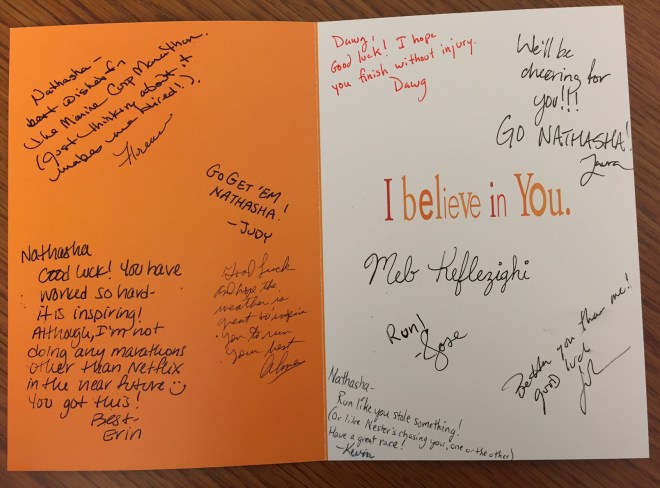 Nathasha-
best wishes for
the Marine Corp Marathon.
(just thinking about it
makes me tired!).
Florence
GO GET 'EM!
NATHASHA!
-JUDY
Nathasha
Good luck! You have
worked so hard-
it is inspiring!
Although, I'm not
doing any marathons
other than Netflix
in the near future
You got this!
Best-
Erin
Good luck
and hope the
weather is
great to
you to run
your best
Dawg,
Good luck! I hope
you finish without injury.
Dawg
We'll be
cheering for
you!!!
GO NATHASHA!
Laura
I believe in You.
Meb Keflezighi
Run!
-Jose
Better you than me!!
good luck
Nathasha-
Run like you stole something!
(Or like Nester's chasing you, one or the other)
Have a great race!
-Kevin